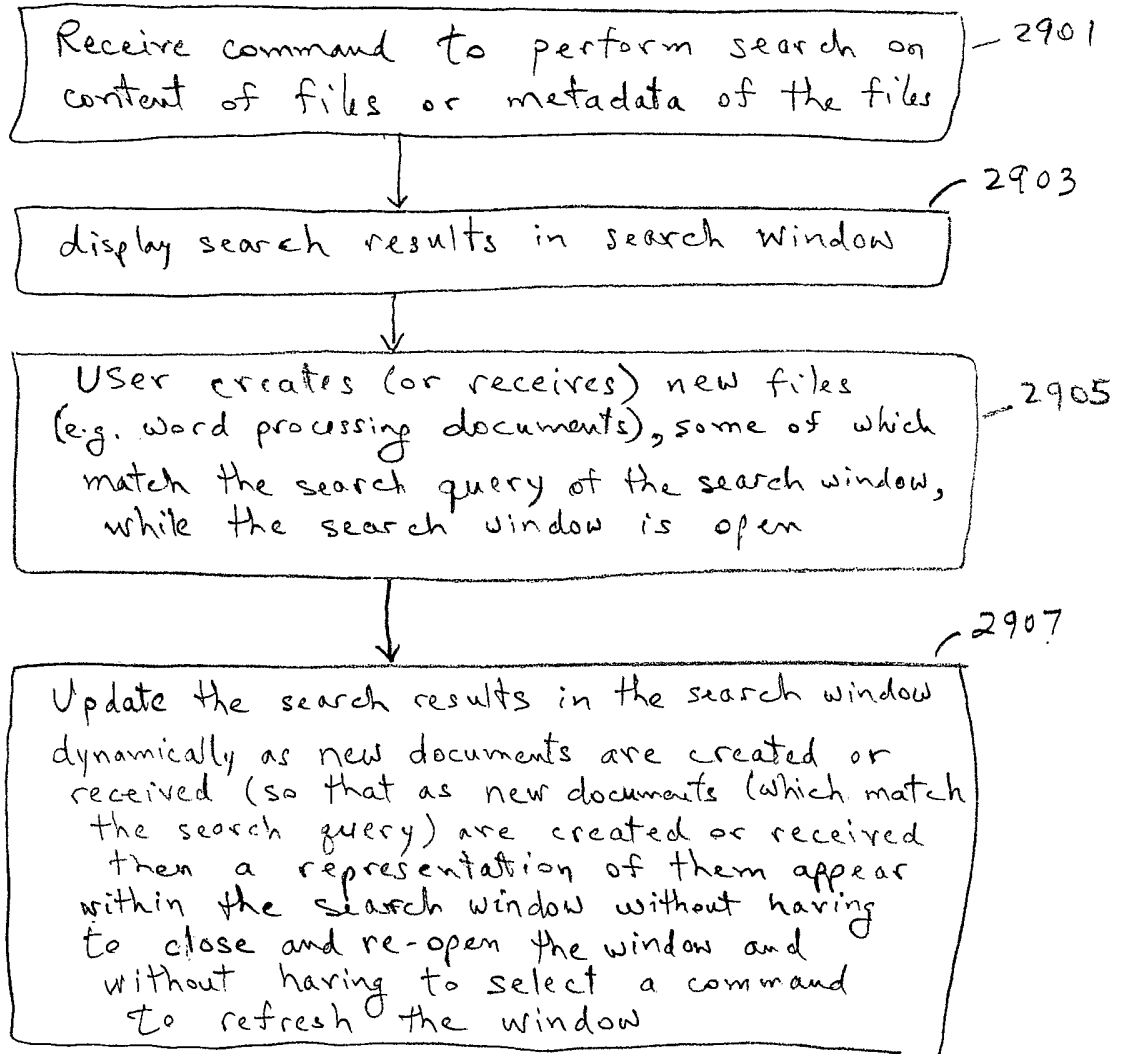 Receive command to perform search on
content of files or metadata of the files
2901
2903
display search results in search window
User creates (or receives) new files
(e.g. word processing documents), some of which
match the search query of the search window,
while the search window is open
2905
2907
Update the search results in the search window
dynamically as new documents are created or
received (so that as new documents (which match
the search query) are created or received
then a representation of them appear
within the search window without having
to close and re-open the window and
without having to select a command
to refresh the window